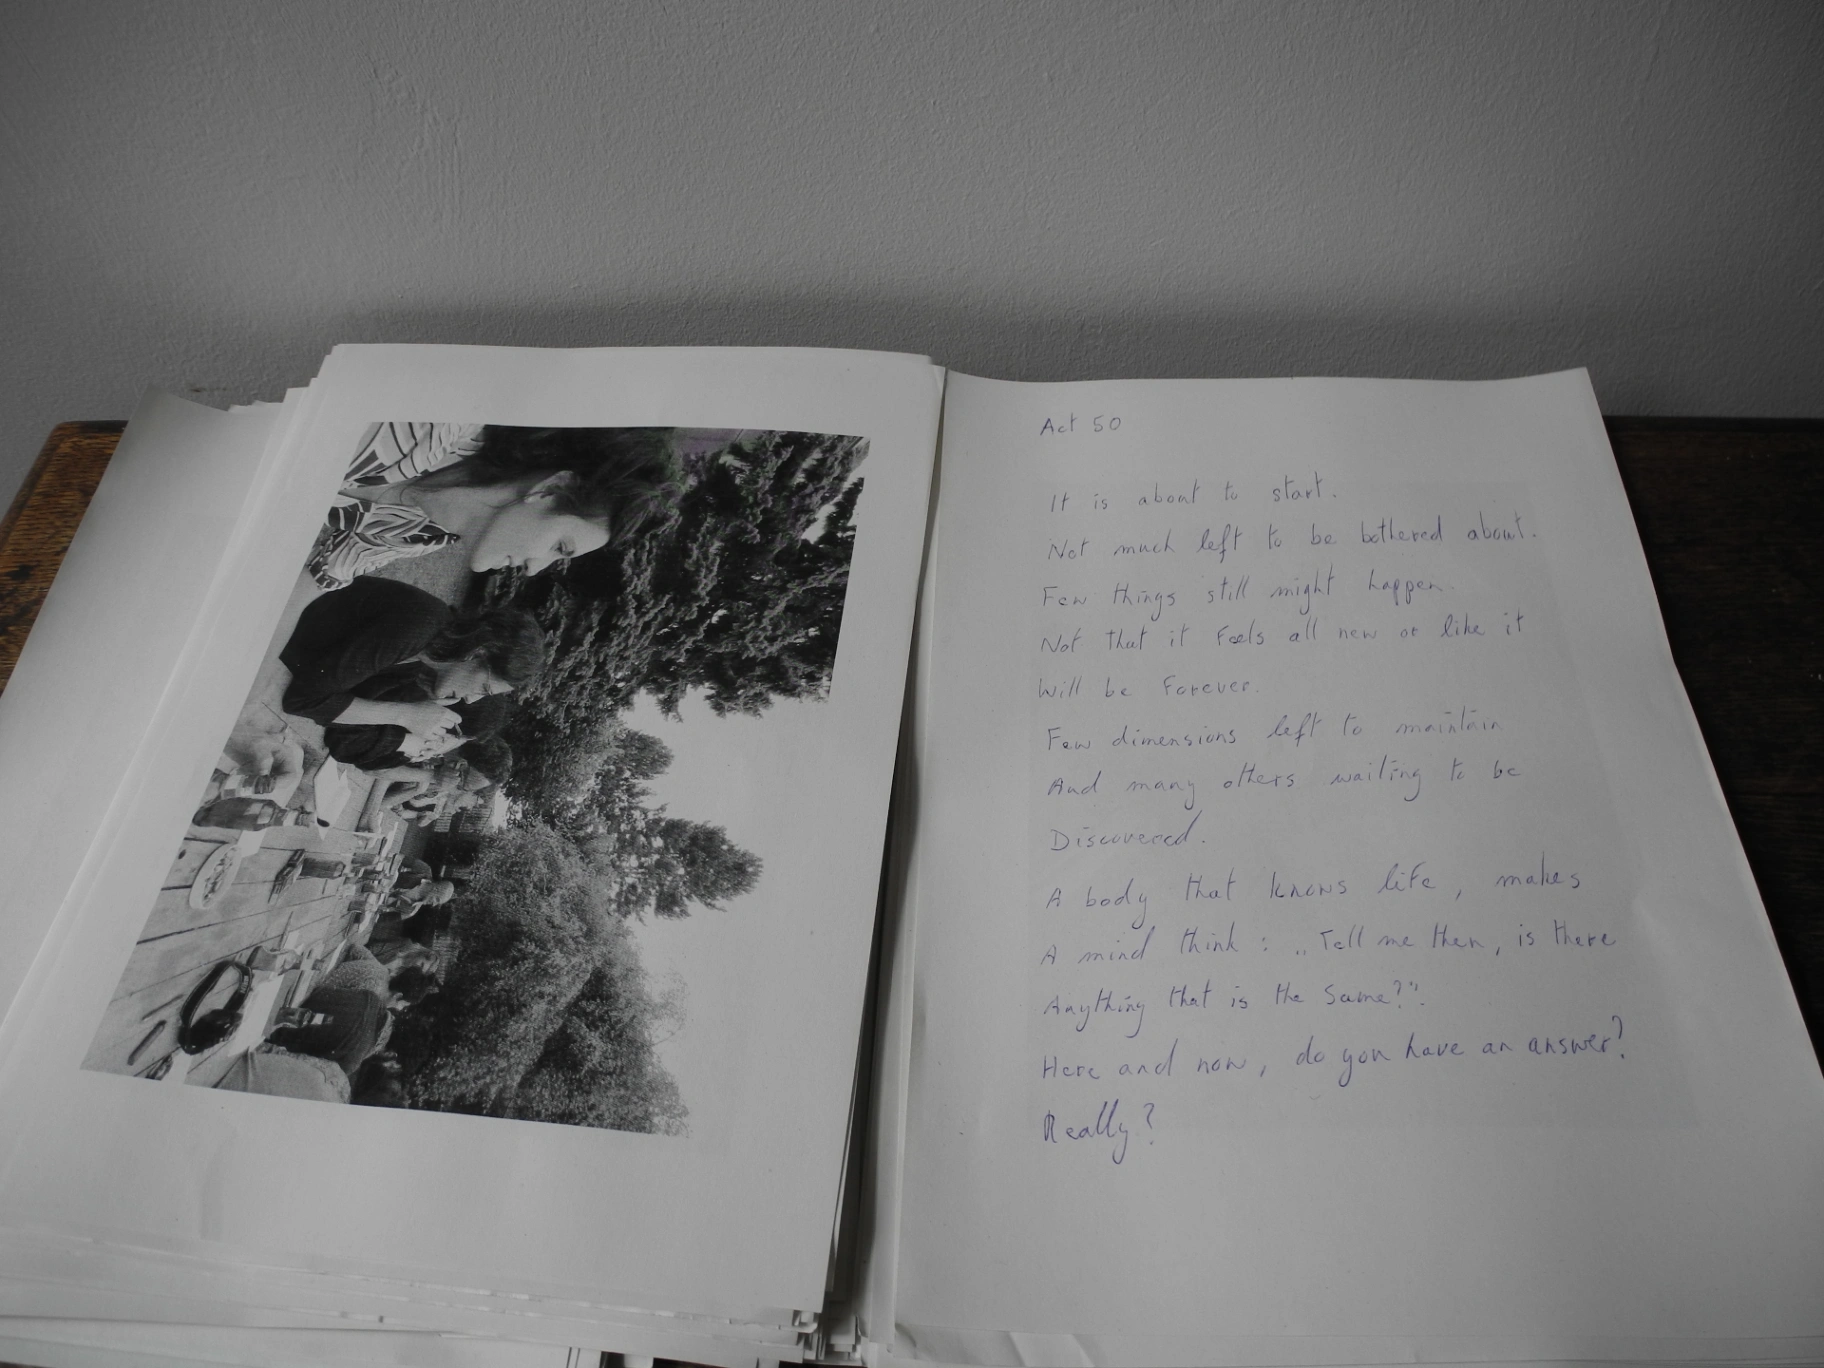 Act 50
It is about to start.
Not much left to be bothered about.
Few things still might happen.
Not that it feels all new or like it
Will be Forever.
Few dimensions left to maintain
And many others waiting to be
Discovered.
A body that knows life, makes
A mind think : „Tell me then, is there
Anything that is the same?".
Here and now, do you have an answer?
Really?